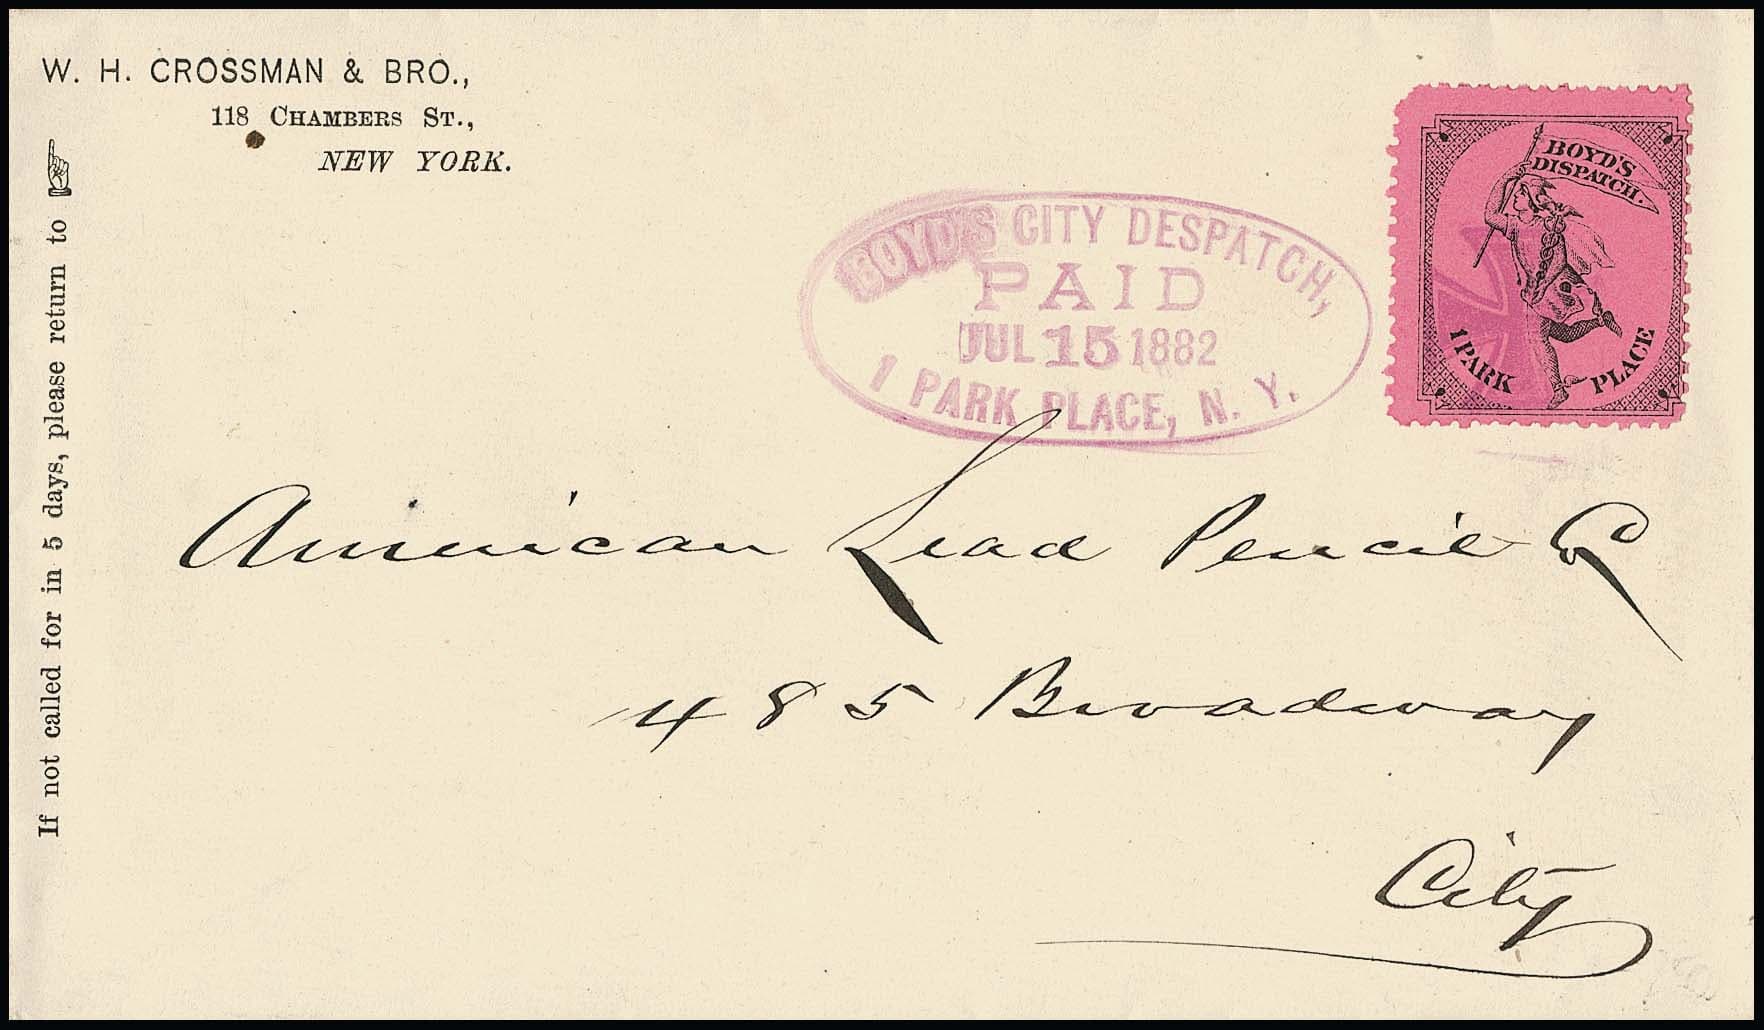 W. H. CROSSMAN & BRO.,
118 CHAMBERS ST.,
NEW YORK.
If not called for in 5 days, please return to
BOYD'S CITY DESPATCH,
PAID
JUL 15 1882
1 PARK PLACE, N. Y.
BOYD'S
DISPATCH.
1 PARK PLACE
American Lead Pencil Co
485 Broadway
City